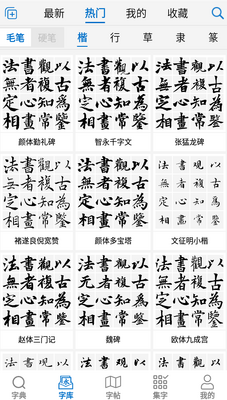 最新 热门 我的 收藏
毛笔 硬笔 楷 行 草 隶 篆
法書觀以
無者複古
定心知為
相畫常鑒
颜体勤礼碑
法書觀以
無者複古
定心知為
相畫常鑒
智永千字文
法書觀以
無者複古
定心知為
相畫常鑒
张猛龙碑
法書觀以
無者複古
定心知為
相畫常鑒
褚遂良倪宽赞
法書觀以
無者複古
定心知為
相畫常鑒
颜体多宝塔
法書觀以
無者複古
定心知為
相畫常鑒
文征明小楷
法書觀以
無者複古
定心知為
相畫常鑒
赵体三门记
法書觀以
无者複古
定心知為
相畫常鑒
魏碑
法書觀以
無者複古
定心知為
相畫常鑒
欧体九成宫
法書觀以
法書觀以
法書觀以
字典 字库 字帖 集字 我的